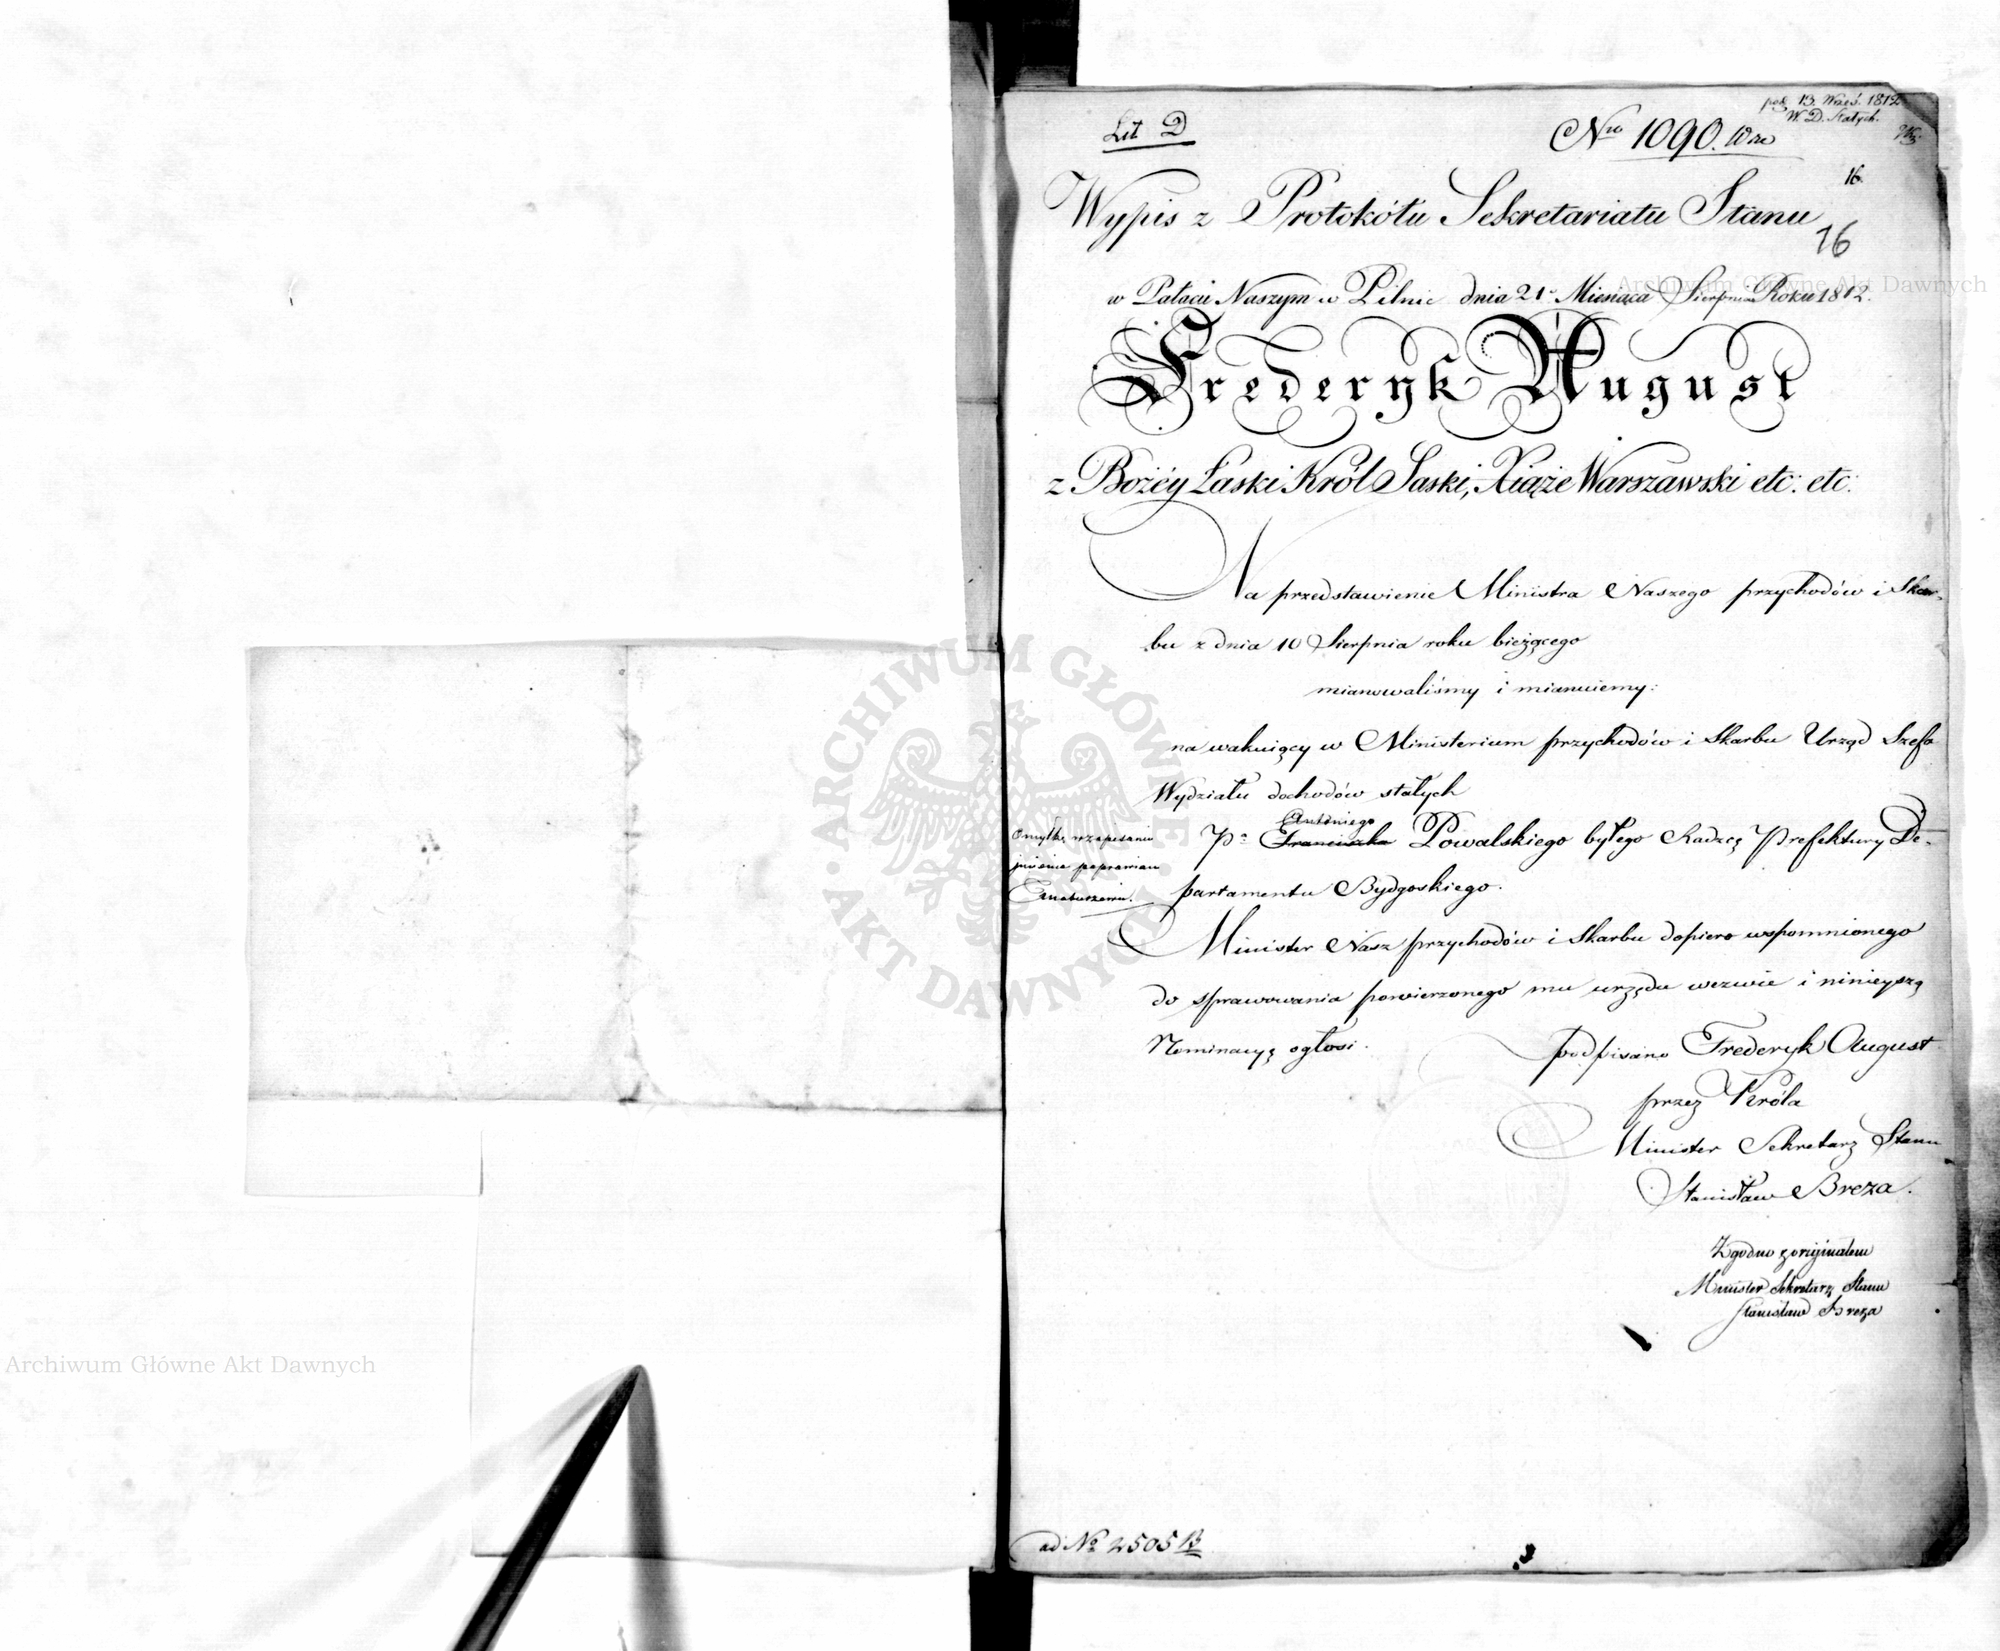 Lit D
pr. 13. Wrześ. 1812
W. D. Stałych.
Nro 1090.
16.
Wypis z Protokółu Sekretariatu Stanu
16
w Pałacu Naszym w Pilnic dnia 21 Miesiąca Sierpnia Roku 1812.
Frederyk August
z Bożéy Łaski Król Saski, Xiąże Warszawski etc: etc:
Na przedstawienie Ministra Naszego przychodów i Skar-
bu z dnia 10 Sierpnia roku bieżącego
mianowaliśmy i mianuiemy:
na wakuiący w Ministerium przychodów i Skarbu Urząd Szefa
Wydziału dochodów stałych
Antoniego
Pa Franciszka Powalskiego byłego Radzcę Prefektury De-
partamentu Bydgoskiego.
Omyłkę w zapisaniu
imienia poprawiam
Minister Nasz przychodów i Skarbu dopiero wspomnionego
do sprawowania powierzonego mu urzędu wezwie i ninieyszą
Nominacyą ogłosi.
podpisano Frederyk August
przez Króla
Minister Sekretarz Stanu
Stanisław Breza.
Zgodno z oryginałem
Minister Sekretarz Stanu
Stanisław Breza
ad No 2505 B
Archiwum Główne Akt Dawnych
Archiwum Główne Akt Dawnych
ARCHIWUM GŁÓWNE AKT DAWNYCH